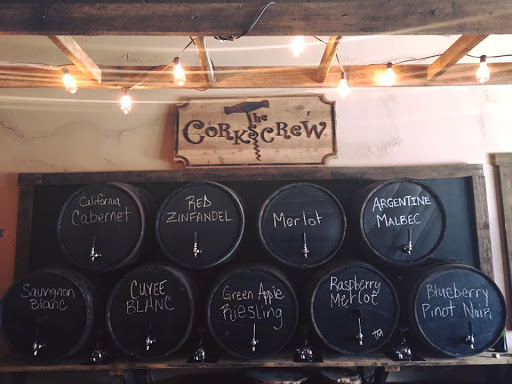 The
CORKSCREW
California
Cabernet
RED
ZINFANDEL
Merlot
ARGENTINE
MALBEC
Sauvignon
Blanc
CUVEE
BLANC
Green Apple
Riesling
Raspberry
Merlot
Blueberry
Pinot Noir